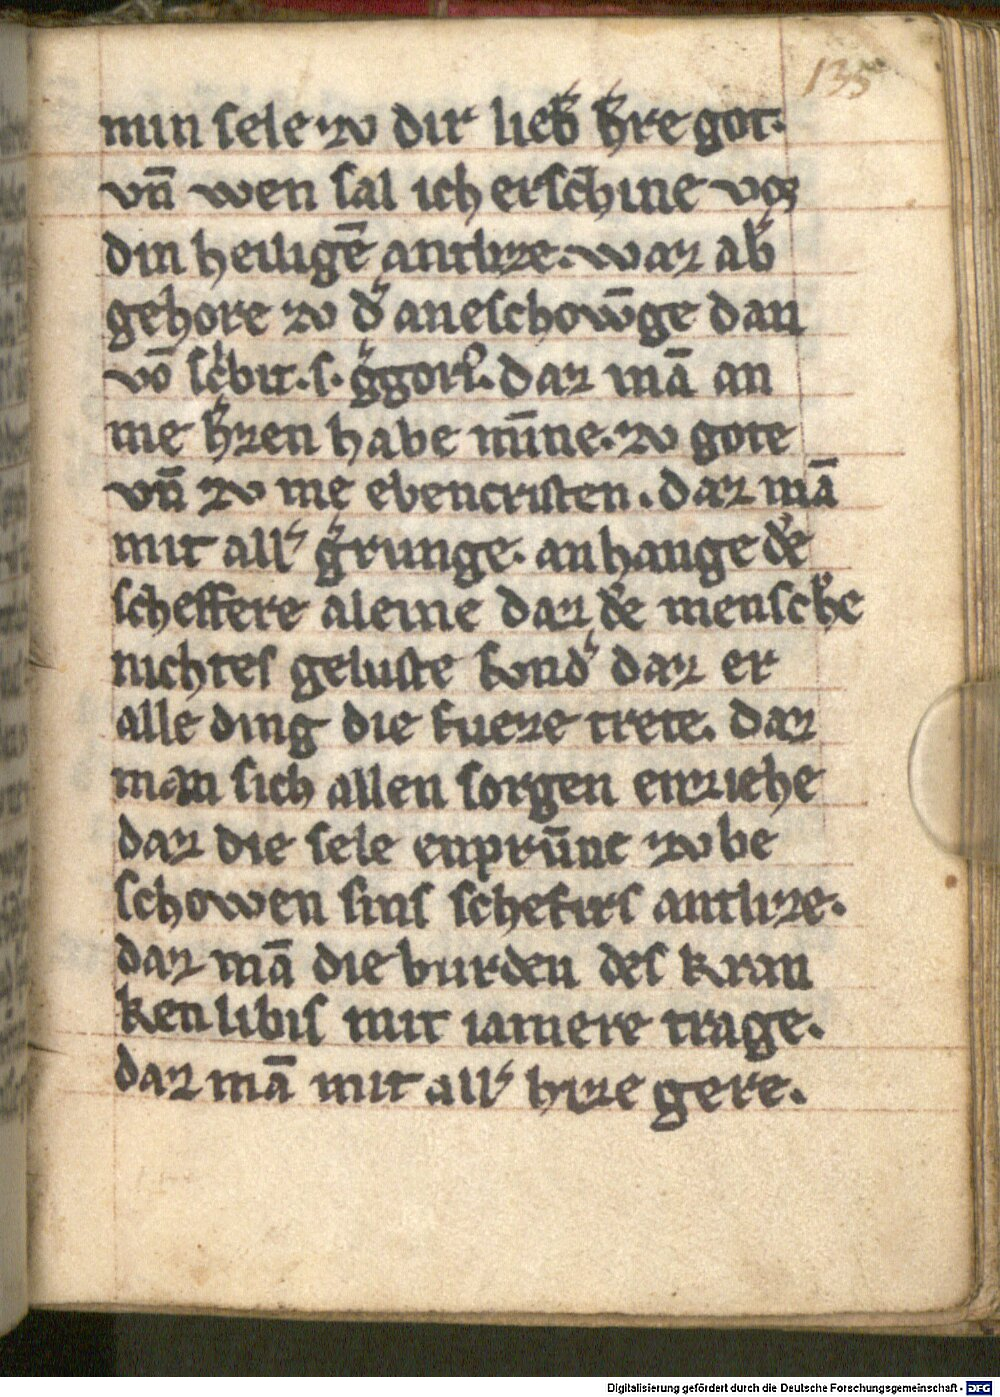 135
min sele zv dir lieb̾ h̾re got.
vn̄ wen sal ich ersch̄ine vor
din heiligē antlize. waz ab̾
gehore zv d̾ aneschow̄ge dan
vō sc̾bit. s. g̾gorꝰ. daz mā an
me h̾zen habe mīne. zv gote
vn̄ zv me ebencristen. daz mā
mit all̾ g̾runge. anhange de̾
scheffere aleine daz de̾ mensch̾e
nichtes geluste svnd̾ daz er
alle ding die fueze trete. daz
man sich allen sorgen enziehe
daz die sele enprūne zv be
schowen sins schefirs antlize.
daz mā die burden des kran
ken libis mit iamere trage.
daz mā mit all̾ hize gere.
Digitalisierung gefördert durch die Deutsche Forschungsgemeinschaft - DFG